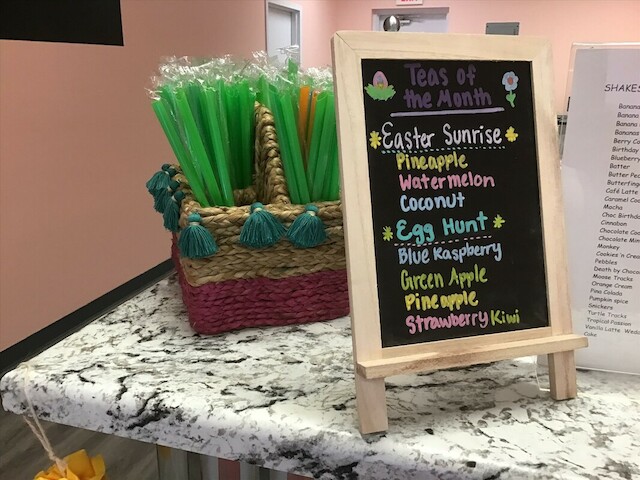 Teas of
the Month
Easter Sunrise
Pineapple
Watermelon
Coconut
Egg Hunt
Blue Raspberry
Green Apple
Pineapple
Strawberry Kiwi
SHAKES
Banana
Banana
Banana
Banana
Berry
Birthday
Blueberry
Batter
Butter
Butterfing
Café Latte
Caramel
Mocha
Choc Birthday
Cinnabon
Chocolate
Chocolate
Monkey
Cookies 'n Crea
Pebbles
Death by Choc
Moose Tracks
Orange Cream
Pina Colada
Pumpkin spice
Snickers
Turtle Tracks
Tropical Passion
Vanilla Latte Wedd
Cake